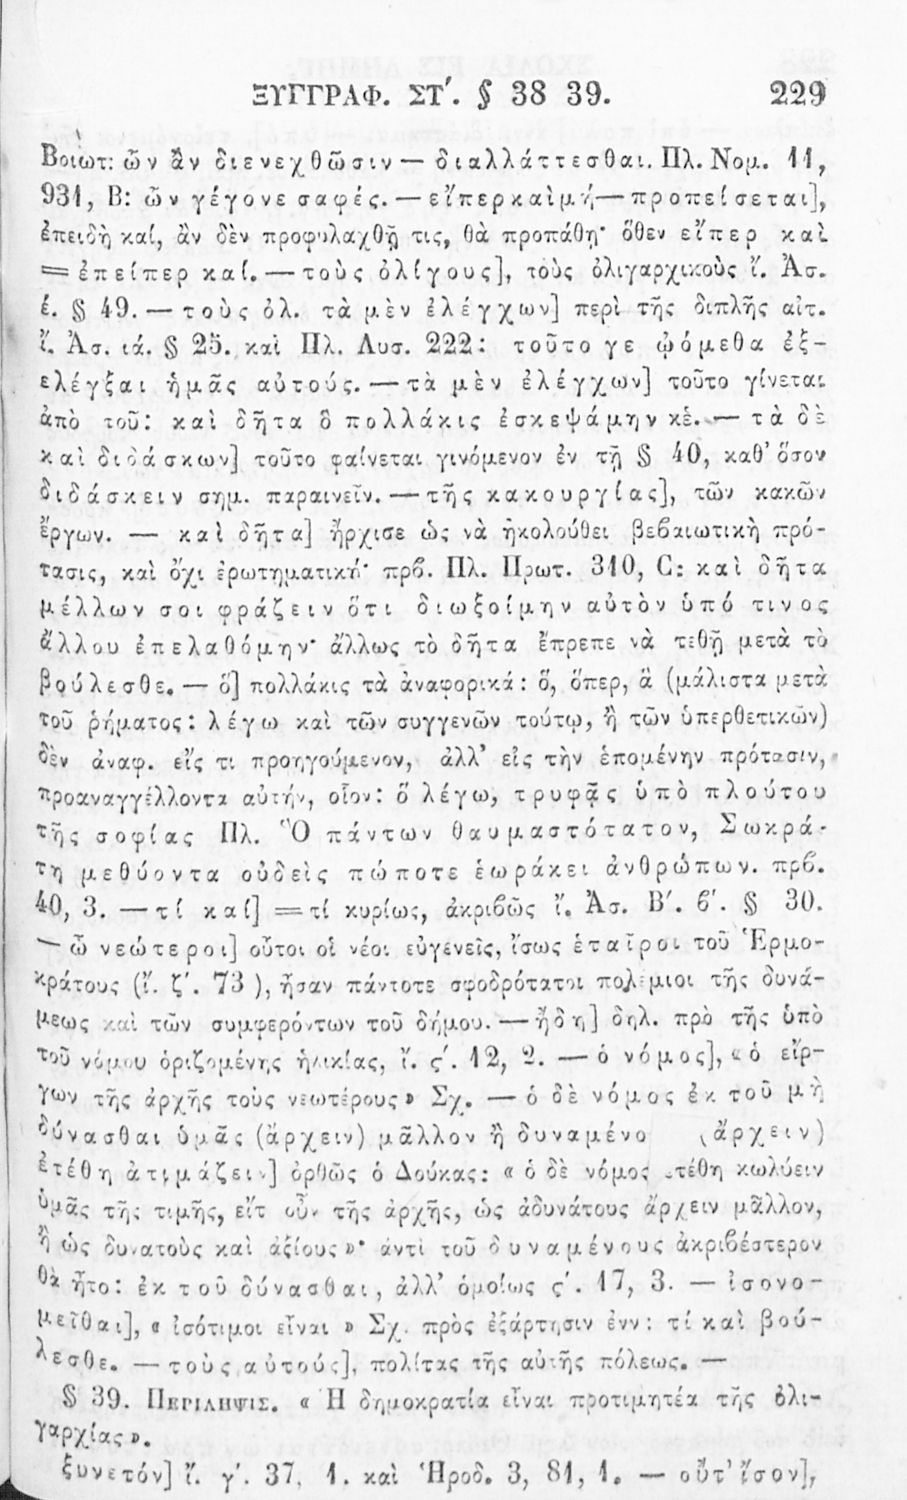 ΞΥΓΓΡΑΦ. ΣΤ΄. § 38 39. 229
Βοιωτ: ὧν ἂν διενεχθῶσιν — διαλλάττεσθαι. Πλ. Νομ. 11,
931, Β: ὧν γέγονε σαφές. — εἴπερ καὶ μή — προπείσεται],
ἐπειδὴ καί, ἂν δὲν προφυλαχθῇ τις, θὰ προπάθῃ· ὅθεν εἴπερ καὶ
= ἐπείπερ καί. — τοὺς ὀλίγους], τοὺς ὀλιγαρχικοὺς ἴ. Ἀσ.
έ. § 49. — τοὺς ὀλ. τὰ μὲν ἐλέγχων] περὶ τῆς διπλῆς αἰτ.
ἴ. Ἀσ. ιά. § 25. καὶ Πλ. Λυσ. 222: τοῦτο γε ᾠόμεθα ἐξ-
ελέγξαι ἡμᾶς αὐτούς. — τὰ μὲν ἐλέγχων] τοῦτο γίνεται
ἀπὸ τοῦ: καὶ δῆτα ὃ πολλάκις ἐσκεψάμην κἑ. — τὰ δὲ
καὶ διδάσκων] τοῦτο φαίνεται γινόμενον ἐν τῇ § 40, καθ' ὅσον
διδάσκειν σημ. παραινεῖν. — τῆς κακουργίας], τῶν κακῶν
ἔργων. — καὶ δῆτα] ἤρχισε ὡς νὰ ἠκολούθει βεβαιωτικὴ πρό-
τασις, καὶ ὄχι ἐρωτηματική· πρϐ. Πλ. Πρωτ. 310, C: καὶ δῆτα
μέλλων σοι φράζειν ὅτι διωξοίμην αὐτὸν ὑπό τινος
ἄλλου ἐπελαθόμην· ἄλλως τὸ δῆτα ἔπρεπε νὰ τεθῇ μετὰ τὸ
βούλεσθε. — ὃ] πολλάκις τὰ ἀναφορικά: ὅ, ὅπερ, ἃ (μάλιστα μετὰ
τοῦ ῥήματος: λέγω καὶ τῶν συγγενῶν τούτῳ, ἢ τῶν ὑπερθετικῶν)
δὲν ἀναφ. εἴς τι προηγούμενον, ἀλλ' εἰς τὴν ἑπομένην πρότασιν,
προαναγγέλλοντα αὐτήν, οἷον: ὃ λέγω, τρυφᾷς ὑπὸ πλούτου
τῆς σοφίας Πλ. Ὃ πάντων θαυμαστότατον, Σωκρά-
τη μεθύοντα οὐδεὶς πώποτε ἑωράκει ἀνθρώπων. πρϐ.
40, 3. — τί καί] = τί κυρίως, ἀκριβῶς ἴ. Ἀσ. Β΄. ϐ΄. § 30.
— ὦ νεώτεροι] οὗτοι οἱ νέοι εὐγενεῖς, ἴσως ἑταῖροι τοῦ Ἑρμο-
κράτους (ἴ. ζ΄. 73 ), ἦσαν πάντοτε σφοδρότατοι πολέμιοι τῆς δυνά-
μεως καὶ τῶν συμφερόντων τοῦ δήμου. — ἤδη] δηλ. πρὸ τῆς ὑπὸ
τοῦ νόμου ὁριζομένης ἡλικίας, ἴ. ς΄. 12, 2. — ὁ νόμος], «ὁ εἴρ-
γων τῆς ἀρχῆς τοὺς νεωτέρους» Σχ. — ὁ δὲ νόμος ἐκ τοῦ μὴ
δύνασθαι ὑμᾶς (ἄρχειν) μᾶλλον ἢ δυναμένο (ἄρχειν)
ἐτέθη ἀτιμάζειν] ὀρθῶς ὁ Δούκας: « ὁ δὲ νόμος ἐτέθη κωλύειν
ὑμᾶς τῆς τιμῆς, εἴτ οὖν τῆς ἀρχῆς, ὡς ἀδυνάτους ἄρχειν μᾶλλον,
ἢ ὡς δυνατοὺς καὶ ἀξίους»· ἀντὶ τοῦ δυναμένους ἀκριβέστερον
θὰ ἦτο: ἐκ τοῦ δύνασθαι, ἀλλ' ὁμοίως ς΄. 17, 3. — ἰσονο-
μεῖθαι], « ἰσότιμοι εἶναι » Σχ. πρὸς ἐξάρτησιν ἐνν: τί καὶ βού-
λεσθε. — τοὺς αὐτούς], πολίτας τῆς αὐτῆς πόλεως. —
§ 39. ΠΕΡΙΛΗΨΙΣ. « Ἡ δημοκρατία εἶναι προτιμητέα τῆς ὀλι-
γαρχίας».
ξυνετόν] ἴ. γ΄. 37, 1. καὶ Ἡροδ. 3, 81, 1. — οὔτ' ἴσον],